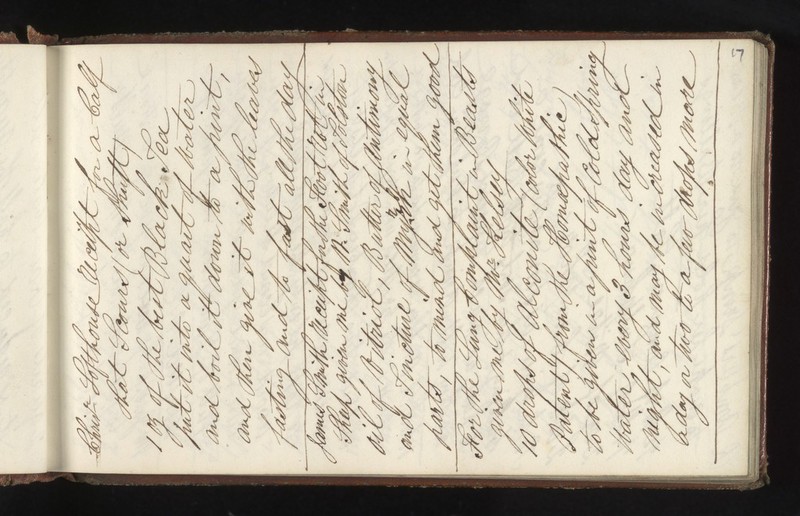 17
Lofthouse Receipt for a Calf
that Scours or Skuft
1 oz of the best Black Tea
put it into a quart of Water
and boil it down to a pint,
and then give it with the leaves
fasting and to fast all the day
James Smith Receipt for the Foot Rot in
Sheep given me by W. Smith of
oil of Vitrioil, Butter of Antimony
and Tincture of Myrrh in equal
parts, to mend and get them good
For the Lung Complaint in Beasts
given me by Mr. Kersey
10 drops of alconite (color White
Patent, from the Homeopathic)
to be given in a pint of Cold Spring
Water every 3 hours day and
night, and may be increased in
a day or two to a few drops more